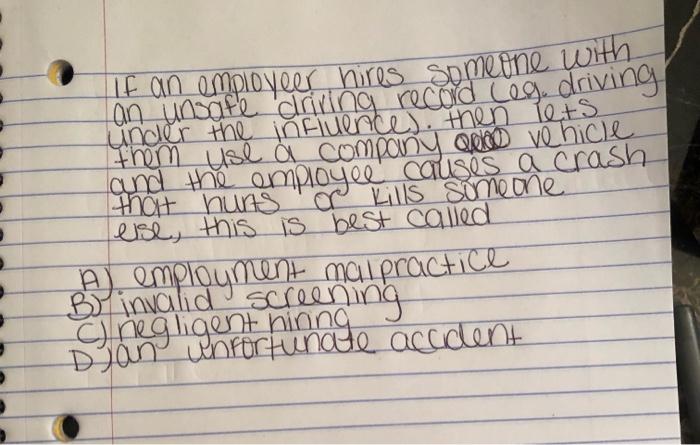 If an employeer hires someone with
an unsafe driving record (eg. driving
under the influence). then lets
them use a company vehicle
and the employee causes a crash
that hurts or kills someone
else, this is best called
A). employment malpractice
B) invalid screening
C) negligent hiring
D) an unfortunate accident